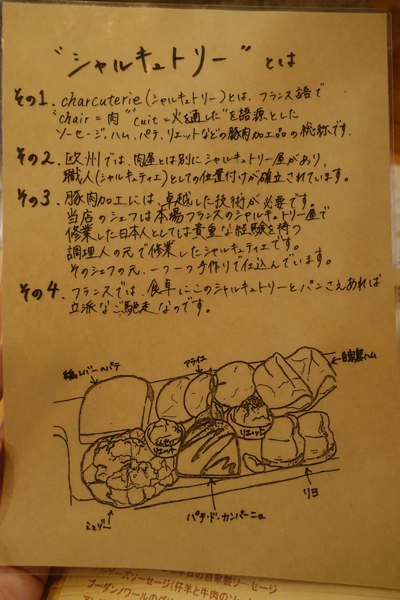 "シャルキュトリー" とは
その1. charcuterie(シャルキュトリー)とは、フランス語で
"chair = 肉" "cuit = 火を通した"を語源とした
ソーセージ、ハム、パテ、リエットなどの豚肉加工品の総称です.
その2. 欧州では、肉屋とは別にシャルキュトリー屋があり、
職人(シャルキュティエ)としての位置付けが確立されています。
その3. 豚肉加工には、卓越した技術が必要です。
当店のシェフは本場フランスのシャルキュトリー屋で
修業した日本人としては貴重な経験を持つ
調理人の元で修業したシャルキュティエです。
そのシェフの元、一つ一つ手作りで仕込んでいます。
その4. フランスでは、食卓にこのシャルキュトリーとパンさえあれば
立派なご馳走なのです。
レバーのパテ
自家製ハム
リエット
リエット
リヨ
パテ・ド・カンパーニュ
自家製ソーセージ
ソーセージ(仔羊と牛肉の
ブーダンノワールの